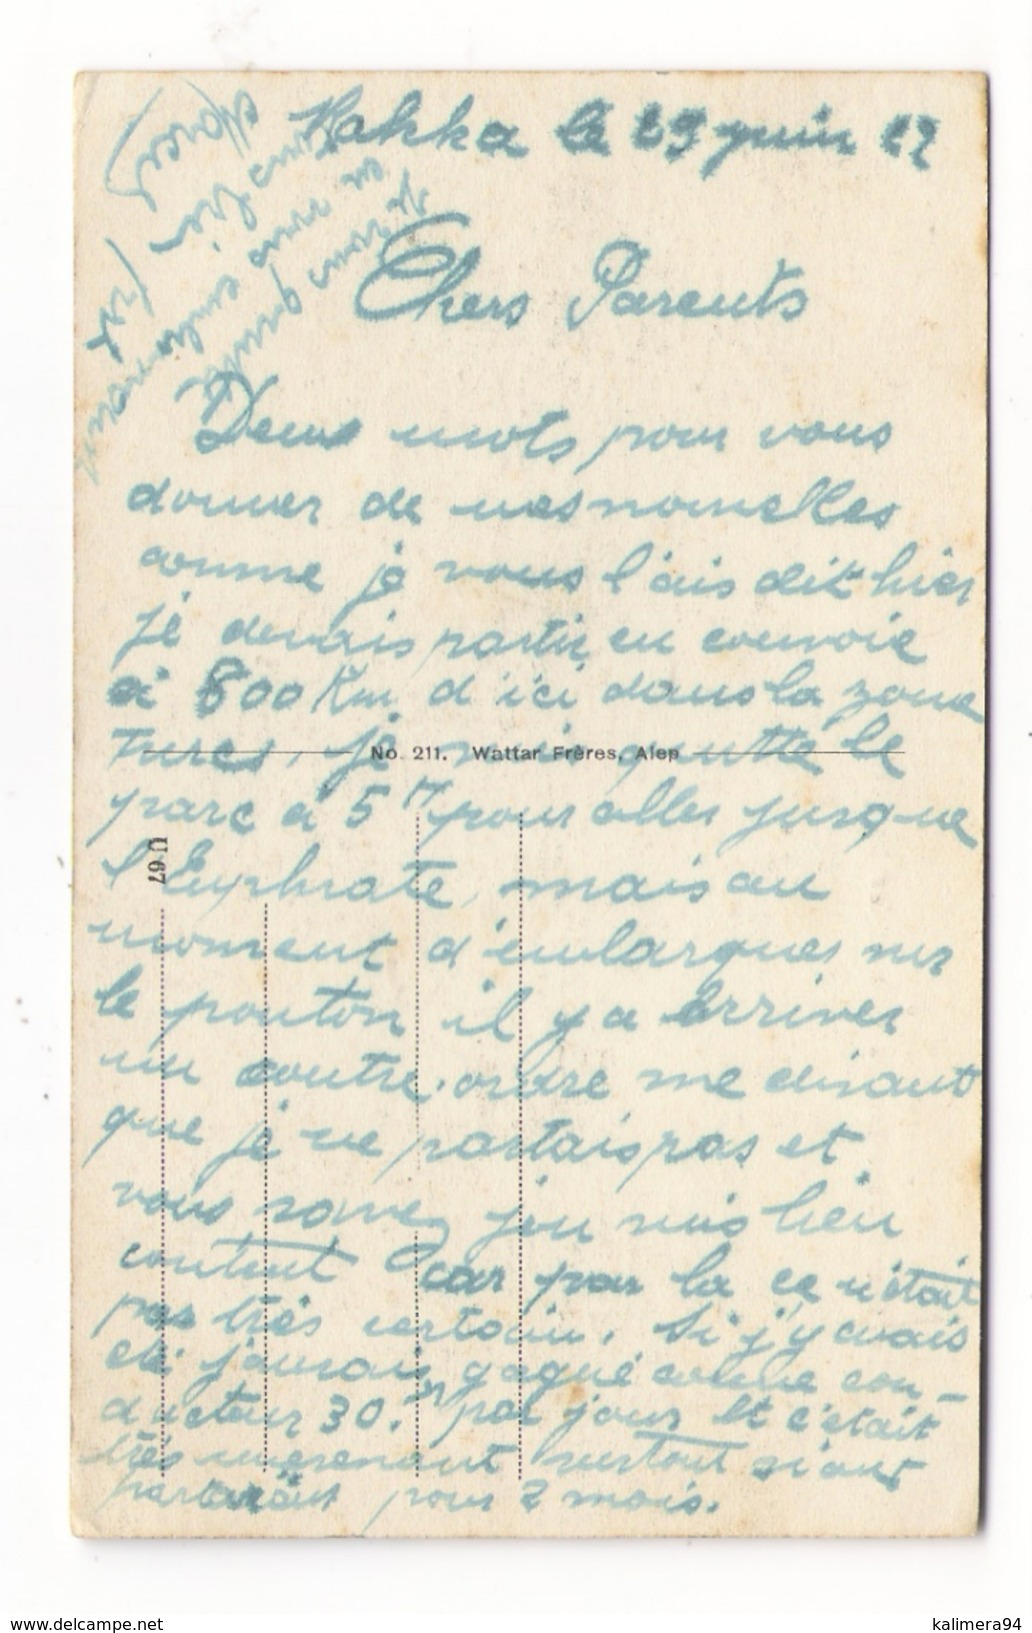 Rakka le 29 juin 22
Chers Parents
Deux mots pour vous
donner de mes nouvelles
comme je vous l'ais dit hier
je devais partir en convoie
à 800 Km d'ici dans la zone
Turcs, je suis quitté le
No. 211. Wattar Frères, Alep
parc à 5 H pour aller jusque
l'Euphrate, mais au
U 67
moment d'embarquer sur
le ponton il y a arriver
un contre-ordre me disant
que je ne partais pas et
vous savez j'en suis bien
content car par la ce n'était
pas très certain. Si j'y avais
été j'aurais gagné comme con-
ducteur 30. par jour et c'était
très surtout si ont
pour 2 mois.
Je vous quitte
en vous embrassant
bien fort
kalimera94
www.delcampe.net